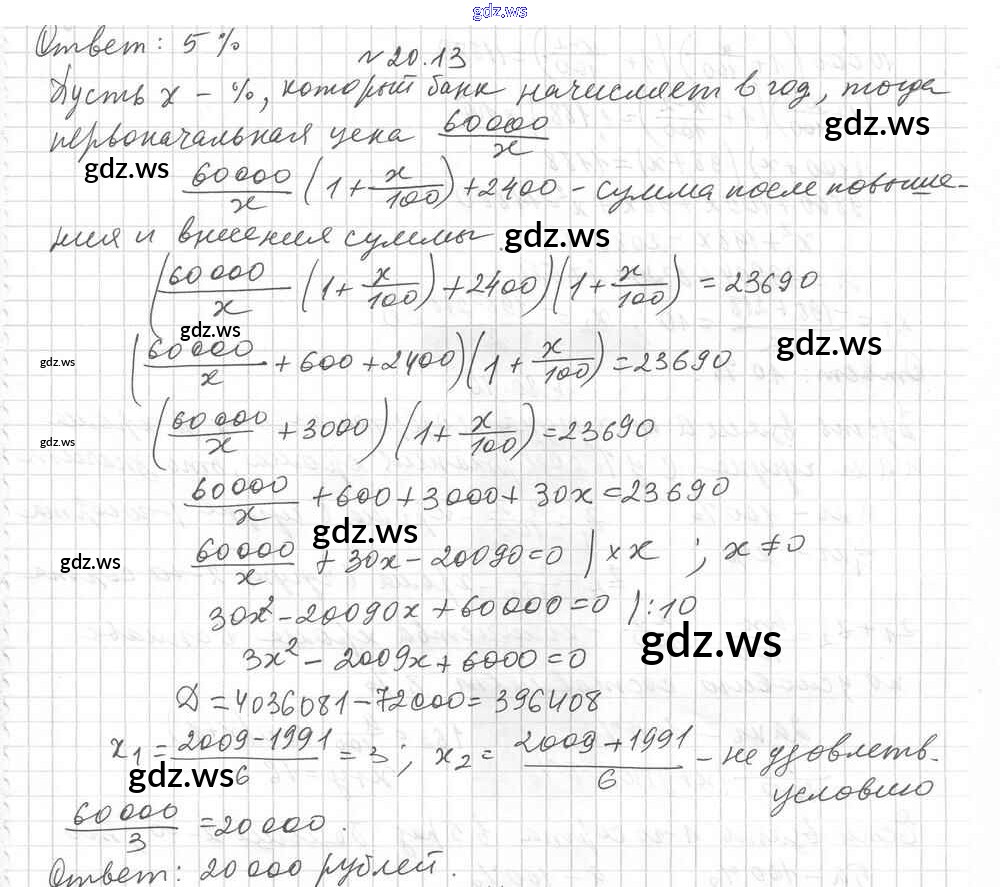 gdz.ws
Ответ: 5 %
№ 20.13
Пусть x - %, который банк начисляет в год, тогда
первоначальная цена 60000/x
gdz.ws
gdz.ws
60000/x (1 + x/100) + 2400 - сумма после повыше-
ния и внесения суммы.
gdz.ws
(60000/x (1 + x/100) + 2400)(1 + x/100) = 23690
gdz.ws
gdz.ws
gdz.ws
(60000/x + 600 + 2400)(1 + x/100) = 23690
gdz.ws
(60000/x + 3000)(1 + x/100) = 23690
60000/x + 600 + 3000 + 30x = 23690
gdz.ws
gdz.ws
60000/x + 30x - 20090 = 0 | × x ; x ≠ 0
30x² - 20090x + 60000 = 0 | : 10
gdz.ws
3x² - 2009x + 6000 = 0
D = 4036081 - 72000 = 396408
x₁ = (2009 - 1991)/6 = 3 ; x₂ = (2009 + 1991)/6 - не удовлетв.
условию
gdz.ws
60000/3 = 20000.
Ответ: 20000 рублей.